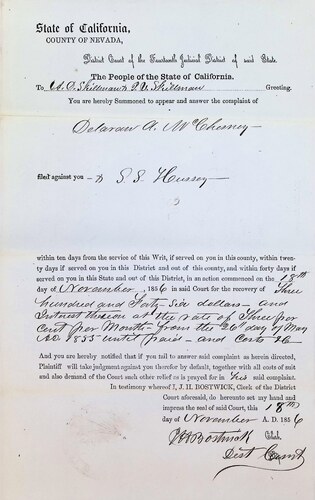 State of California,
COUNTY OF NEVADA,
District Court of the Fourteenth Judicial District of said State.
The People of the State of California.
To A. O. Skillman & P. V. Skillman Greeting.
You are hereby Summoned to appear and answer the complaint of
Delavan A. McChesney
filed against you & S. S. Hussey
within ten days from the service of this Writ, if served on you in this county, within twenty
days if served on you in this District and out of this county, and within forty days if
served on you in this State and out of this District, in an action commenced on the 18th
day of November, 1856 in said Court for the recovery of Three
hundred and Forty Six dollars - and
Interest thereon at the rate of Three per
cent per Month - from the 26th day of May
AD 1855 until paid - and costs &c
And you are hereby notified that if you fail to answer said complaint as herein directed,
Plaintiff will take judgment against you therefor by default, together with all costs of suit
and also demand of the Court such other relief as is prayed for in his said complaint.
In testimony whereof I, J. H. BOSTWICK, Clerk of the District
Court aforesaid, do hereunto set my hand and
impress the seal of said Court, this 18th
day of November A. D. 1856
J H Bostwick Clerk.
Dist Court